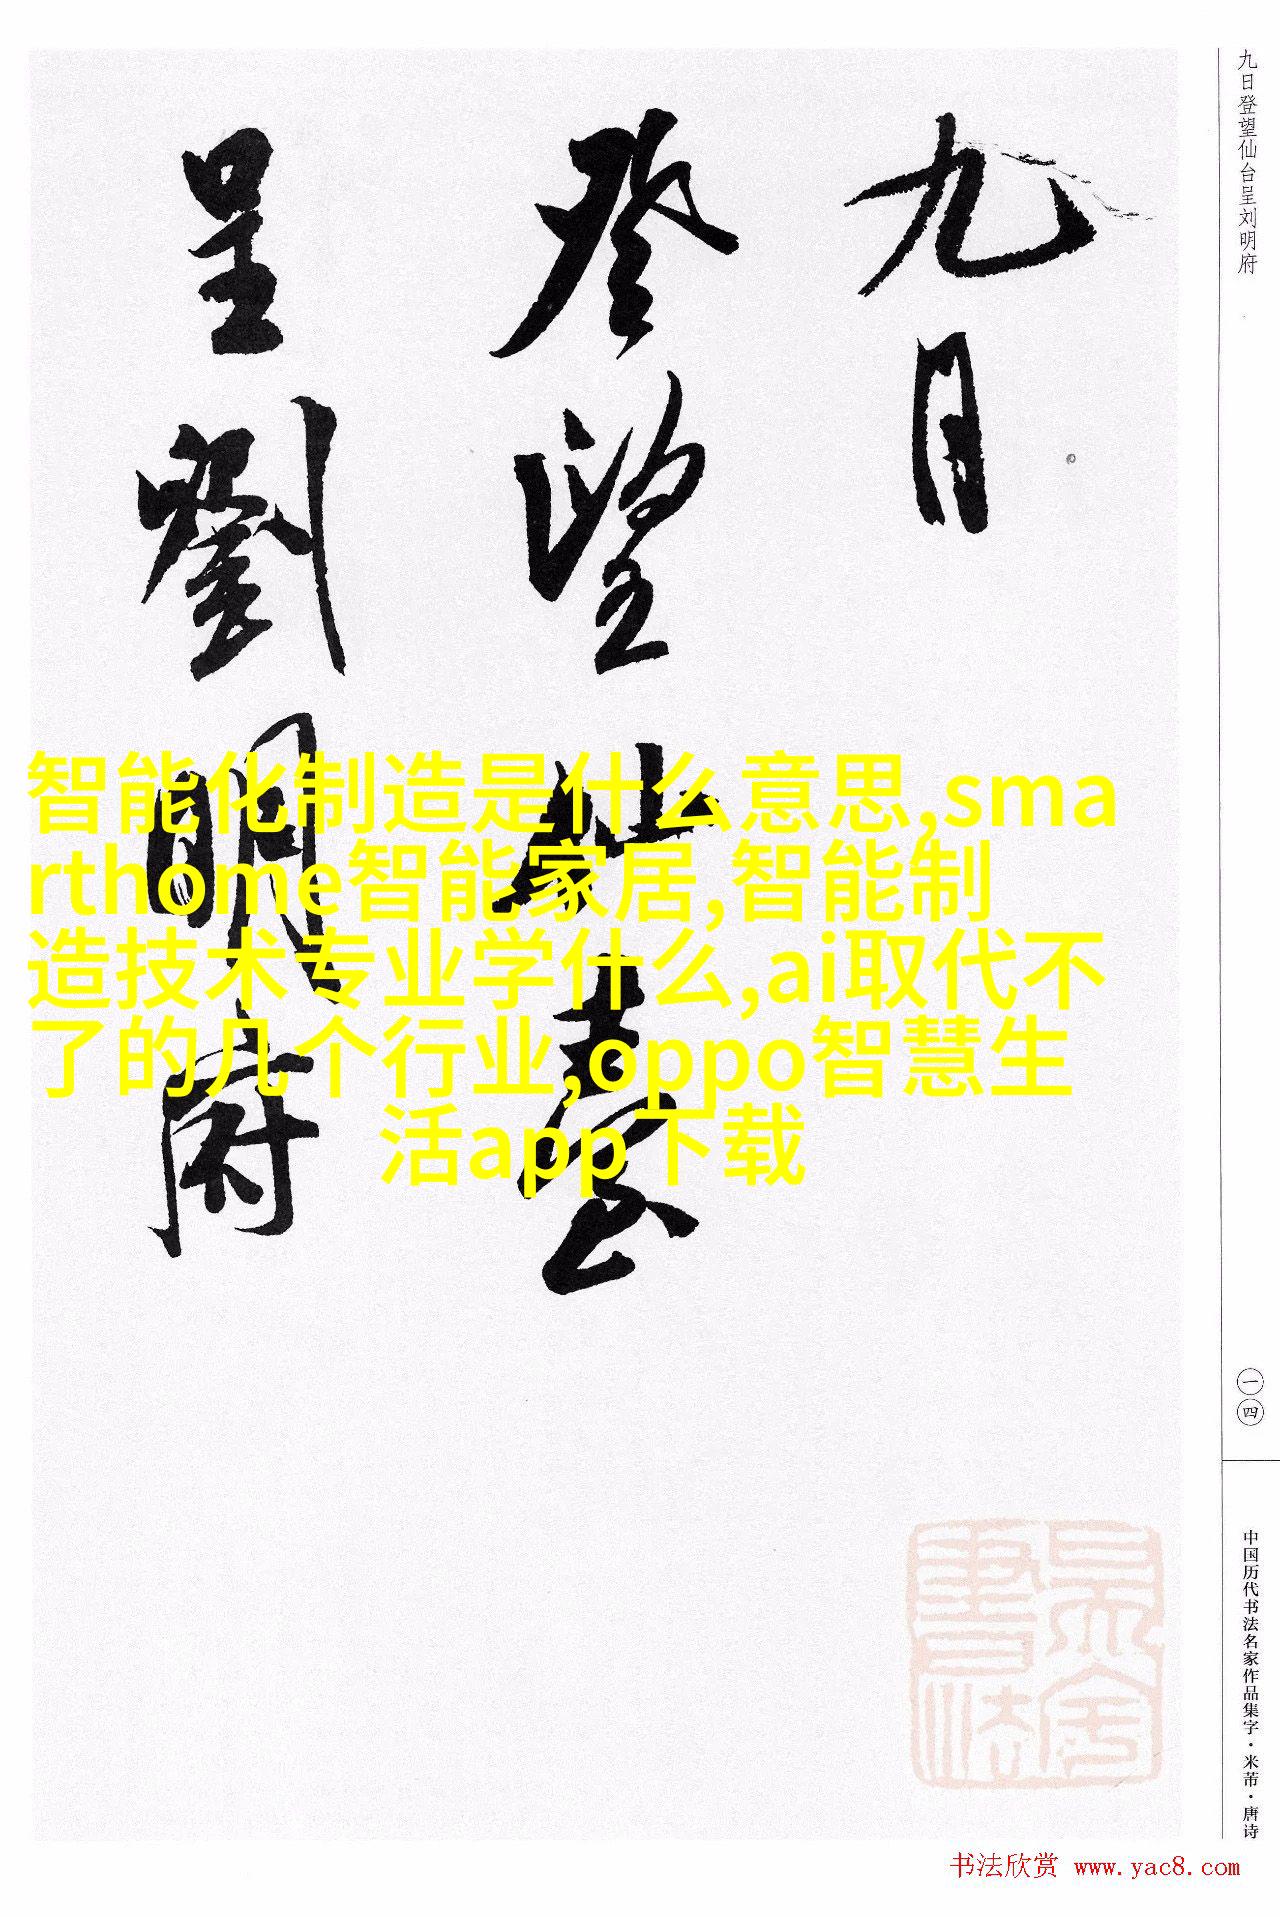 九日登望仙台呈刘明府
九日
登望仙臺
呈劉明府
智能化制造是什么意思,sma
rthome智能家居,智能制
造技术专业学什么,ai取代不
了的几个行业,oppo智慧生
活app下载
一四
中国历代书法名家作品集字·米芾·唐诗
书法欣赏 www.yac8.com